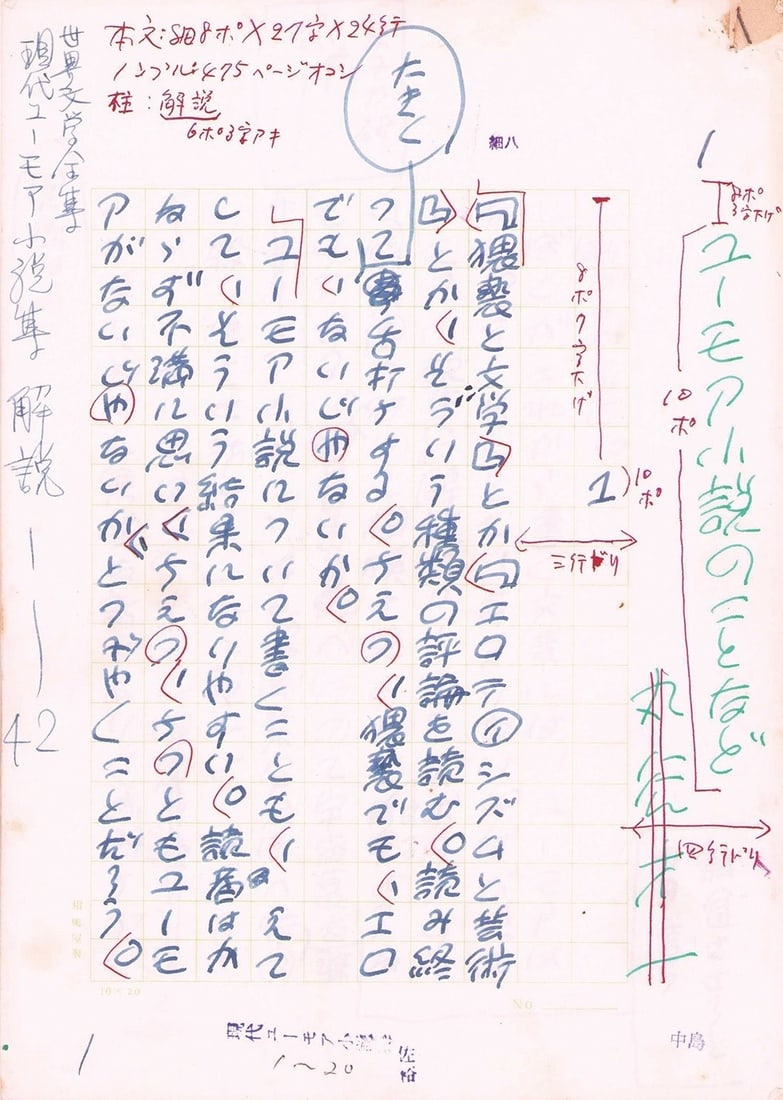 本文:細8ポ×27字×24行
ノンブル475ページオコシ
柱:解説
6ポ3字アキ
たきく
細八
1
8ポ
3字下ゲ
ユーモア小説のことなど
10ポ
丸谷才一
四行ドリ
8ポ7字下ゲ
1
10ポ
三行ドリ
『猥褻と文学』とか『エロティシズムと芸術
』とか、そういう種類の評論を読む。読み終
つて舌打ちする。ちえつ、猥褻でも、エロ
でも、ないじやないか。
ユーモア小説について書くことも、えて
して、そういう結果になりやすい。読者はか
ならず不満に思い、ちえつ、ちつともユーモ
アがないじやないか、とつぶやくことだろう。
世界文学全集
現代ユーモア小説集 解説 1―42
10×20
No
1
現代ユーモア小説集
1〜20
佐裕
中島